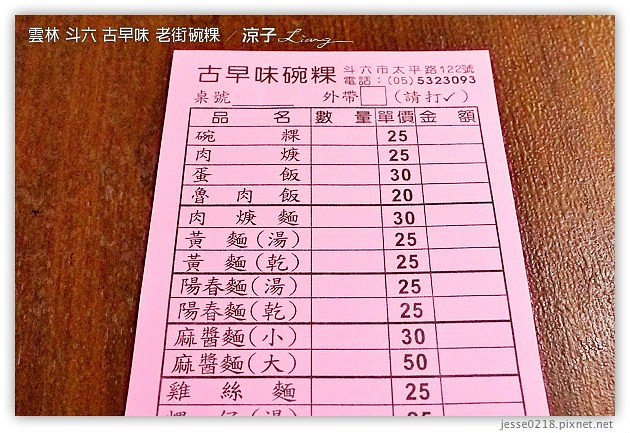 雲林 斗六 古早味 老街碗粿 / 涼子 Liang
古早味碗粿 斗六市太平路122號
電話：(05) 5323093
桌號______ 外帶□ (請打✓)
品 名 數 量 單價 金 額
碗 粿 25
肉 焿 25
蛋 飯 30
魯 肉 飯 20
肉 焿 麵 30
黃 麵(湯) 25
黃 麵(乾) 25
陽春麵(湯) 25
陽春麵(乾) 25
麻醬麵(小) 30
麻醬麵(大) 50
雞 絲 麵 25
jesse0218.pixnet.net